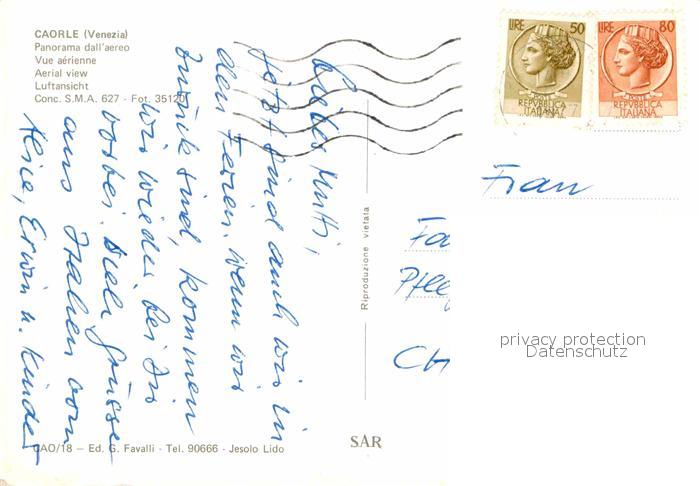 CAORLE (Venezia)
Panorama dall'aereo
Vue aérienne
Aerial view
Luftansicht
Conc. S.M.A. 627 - Fot. 35120
LIRE 50
POSTE
REPVBBLICA
ITALIANA
LIRE 80
POSTE
REPVBBLICA
ITALIANA
Liebes Mutti,
jetzt sind auch wir in
den Ferien. Wenn wir
zurück sind, kommen
wir wieder bei Dir
vorbei. Viele Grüsse
aus Italien von
Alice, Erwin u. Kinder
Riproduzione vietata
Frau
Fa
Pfleg
CH
privacy protection
Datenschutz
SAR
CAO/18 - Ed. G. Favalli - Tel. 90666 - Jesolo Lido